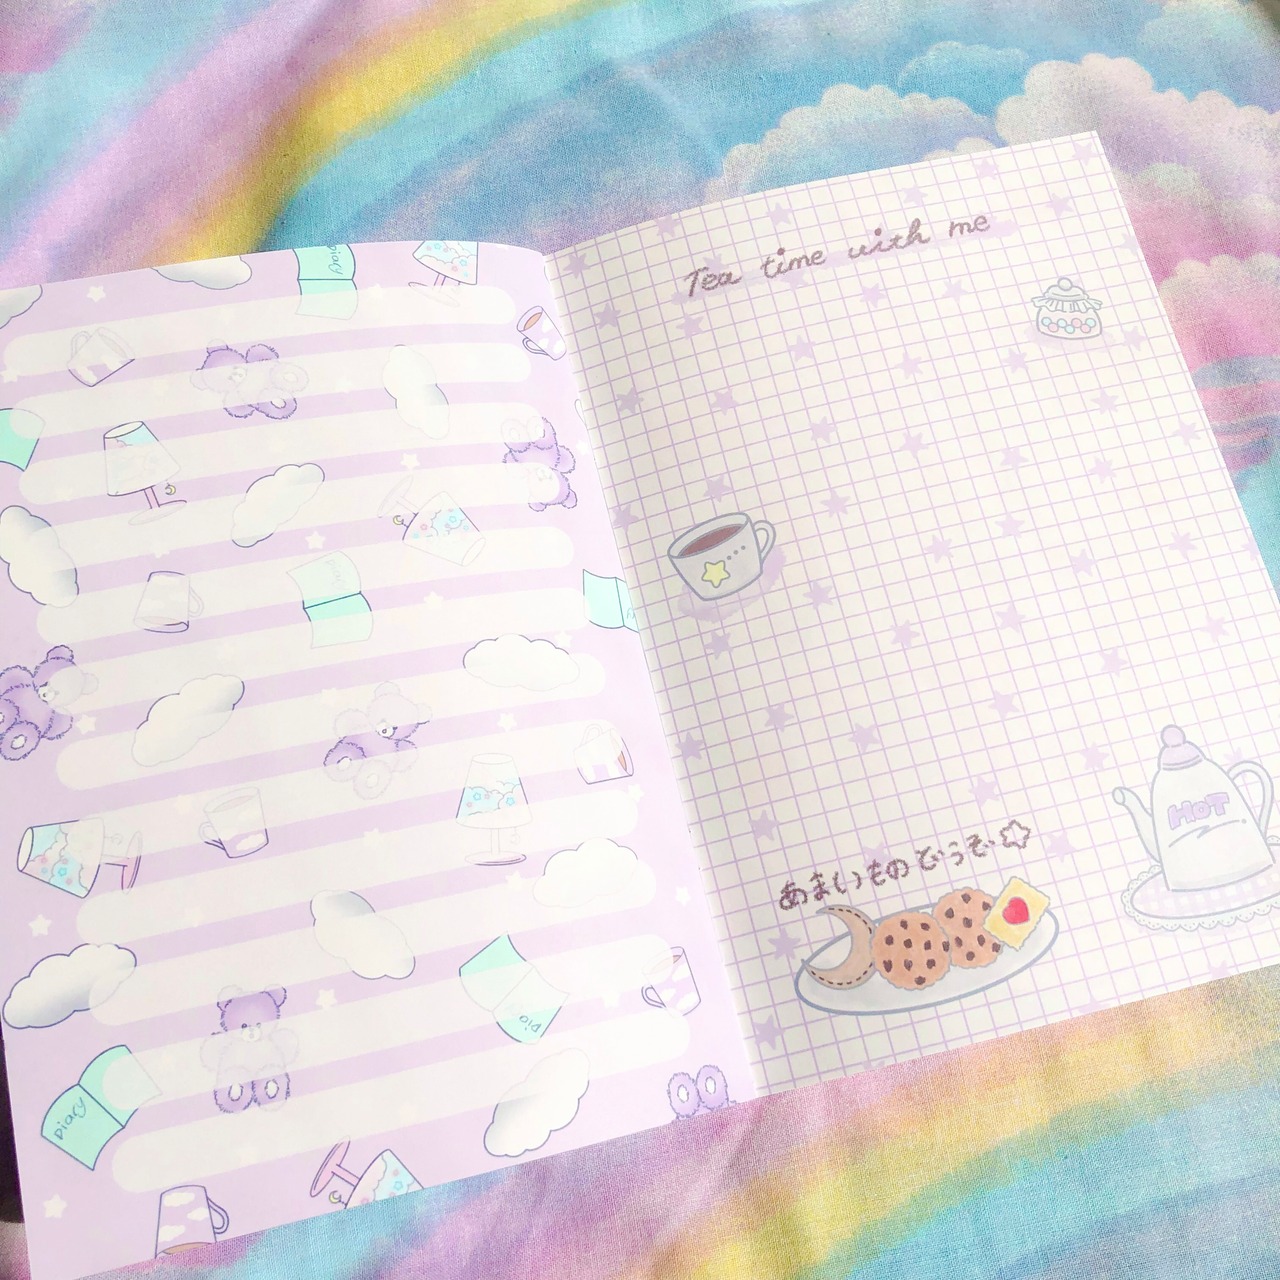 Diary
Diary
Dia
Diary
Tea time with me
HOT
あまいものどうぞ☆